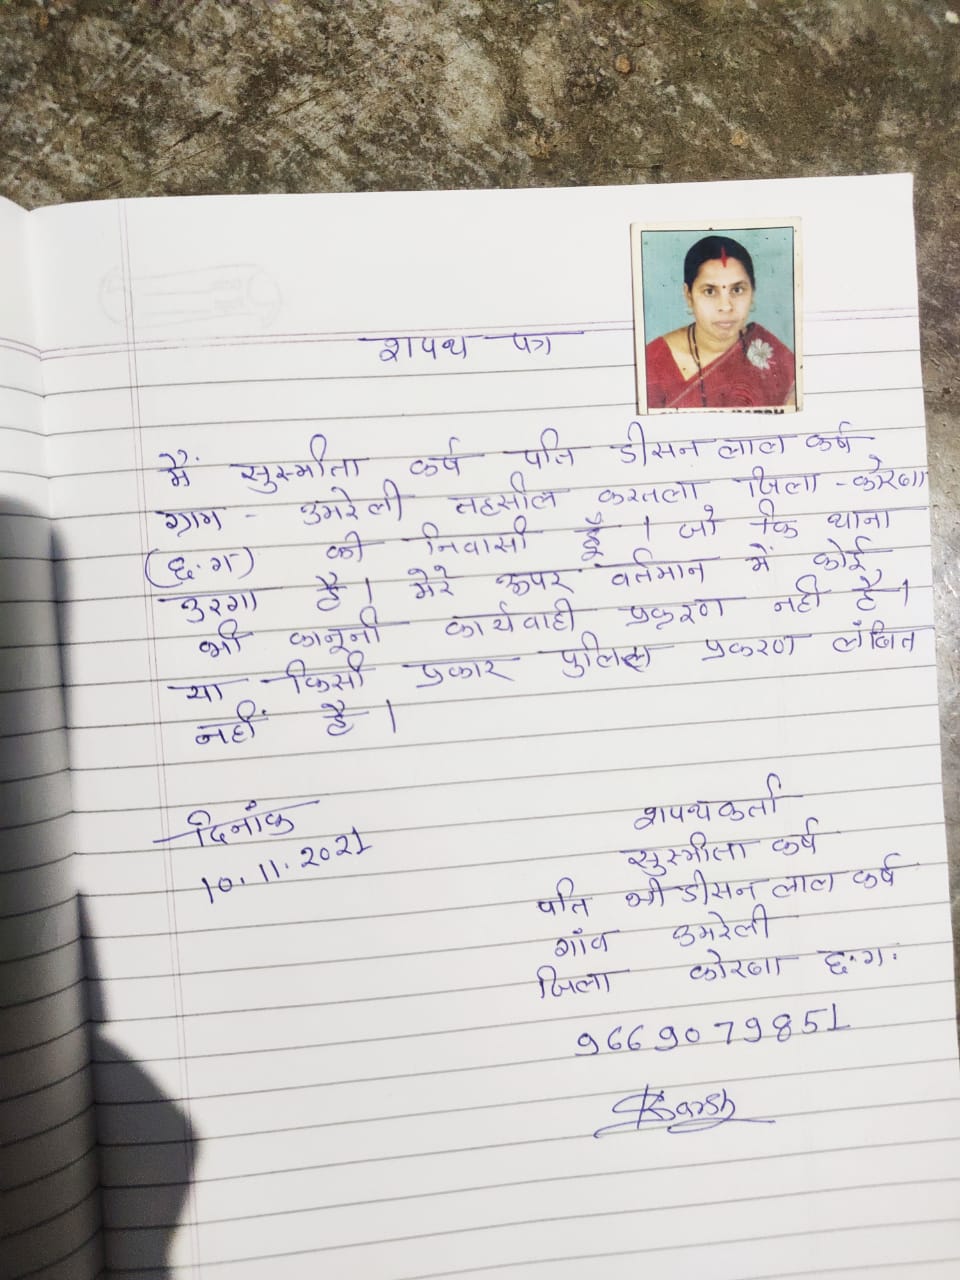 शपथ पत्र
मैं सुस्मीता कर्ष पति डीसन लाल कर्ष
ग्राम - उमरेली तहसील करतला जिला - कोरबा
(छ.ग) की निवासी हूँ । जो कि थाना
उरगा है । मेरे ऊपर वर्तमान में कोई
भी कानूनी कार्यवाही प्रकरण नही है ।
या किसी प्रकार पुलिस प्रकरण लंबित
नहीं है ।
दिनांक
10.11.2021
शपथकर्ता
सुस्मीता कर्ष
पति श्री डीसन लाल कर्ष
गांव उमरेली
जिला कोरबा छ.ग.
9669079851
Karsh